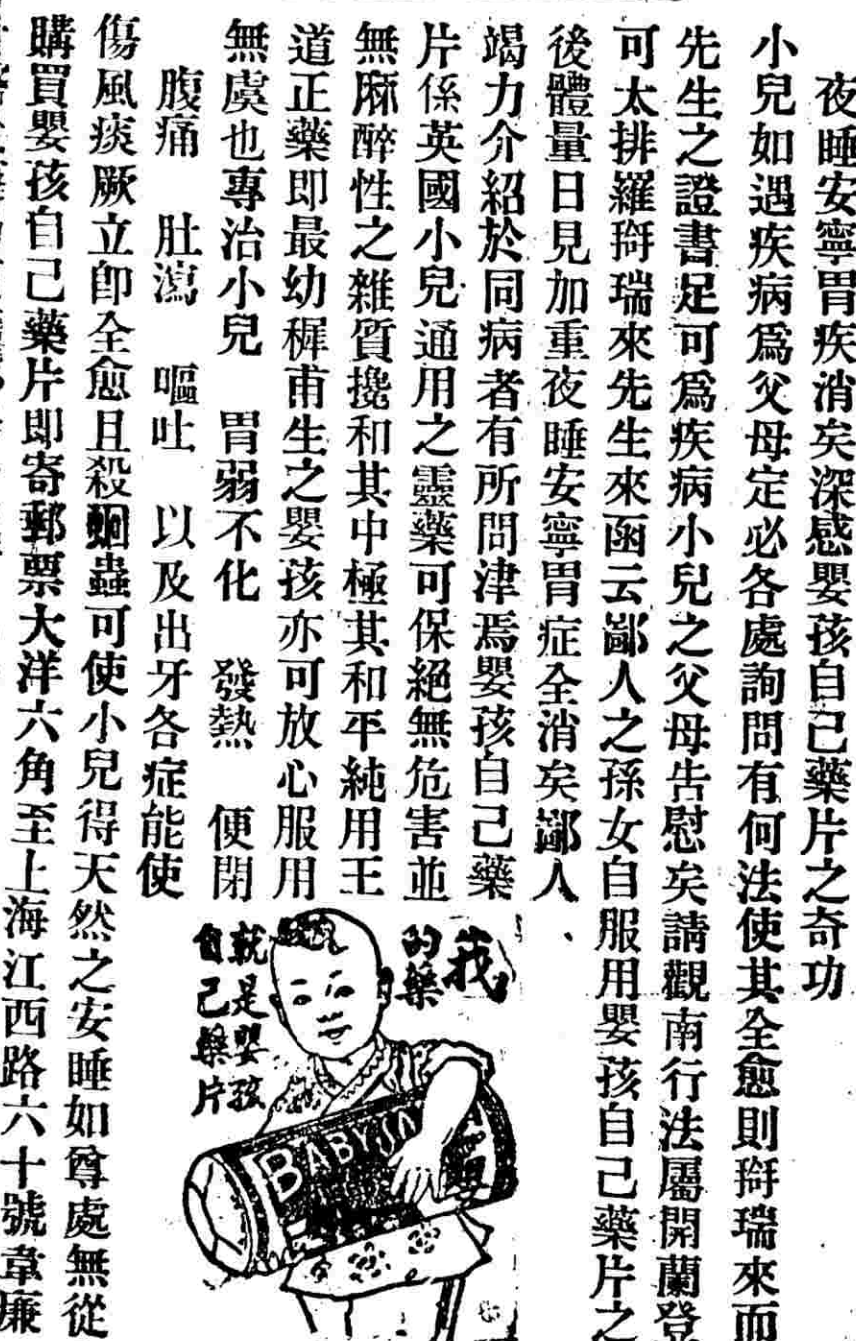 夜睡安寧胃疾消矣深感嬰孩自己藥片之奇功
小兒如遇疾病爲父母定必各處詢問有何法使其全愈則哿瑞來而
先生之證書足可爲疾病小兒之父母告慰矣請觀南行法屬開蘭登
可太排羅哿瑞來先生來函云鄙人之孫女自服用嬰孩自己藥片之
後體量日見加重夜睡安寧胃症全消矣鄙人
竭力介紹於同病者有所問津焉嬰孩自己藥
片係英國小兒通用之靈藥可保絕無危害並
無麻醉性之雜質攙和其中極其和平純用王
道正藥即最幼穉甫生之嬰孩亦可放心服用
無虞也專治小兒 胃弱不化 發熱 便閉
腹痛 肚瀉 嘔吐 以及出牙各症能使
傷風痰厥立卽全愈且殺蛔蟲可使小兒得天然之安睡如尊處無從
購買嬰孩自己藥片即寄郵票大洋六角至上海江西路六十號韋廉
我的藥
就是嬰孩自己藥片
BABY'S